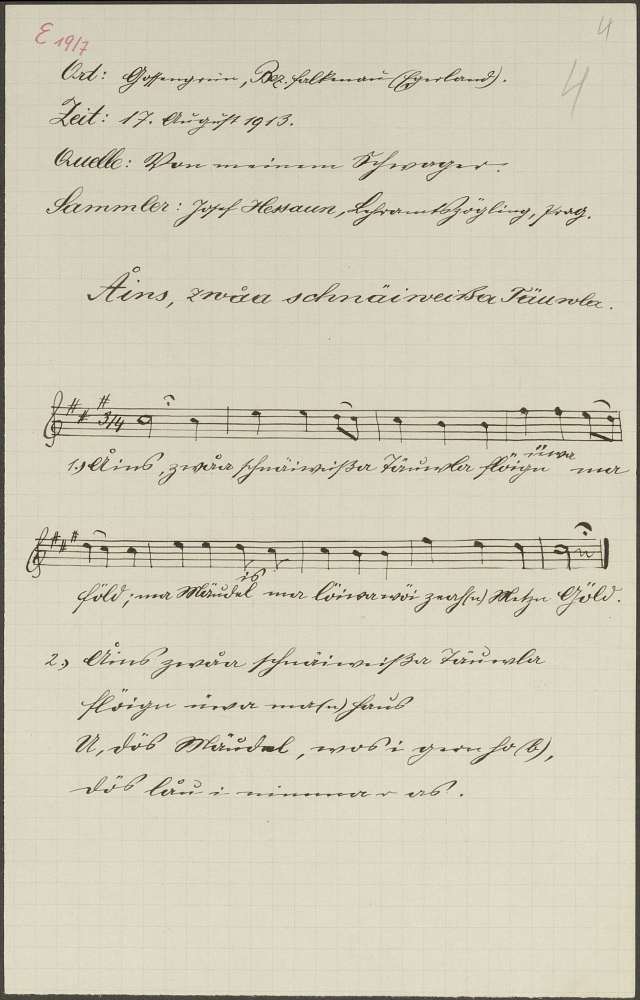 E 19/7
4
4
Ort: Gossengrün, Bez. Falkenau (Egerland).
Zeit: 17. August 1913.
Quelle: Von meinem Schwager.
Sammler: Josef Hessaun, Lehramtszögling, Prag.
Åins, zwåa schnäiweißa Täuwla.
3/4
1.) Åins, zwåa schnäiweißa Täuwla flöign üwa ma
föld; ma Mäudel is ma löiwa wöi zeah(n) Metzn Göld.
2.) Åins zwåa schnäiweißa Täuwla
flöign üwa ma(n) Haus
U, dös Mäudel, wos i gern ho(b),
dös låu i nimma r as.